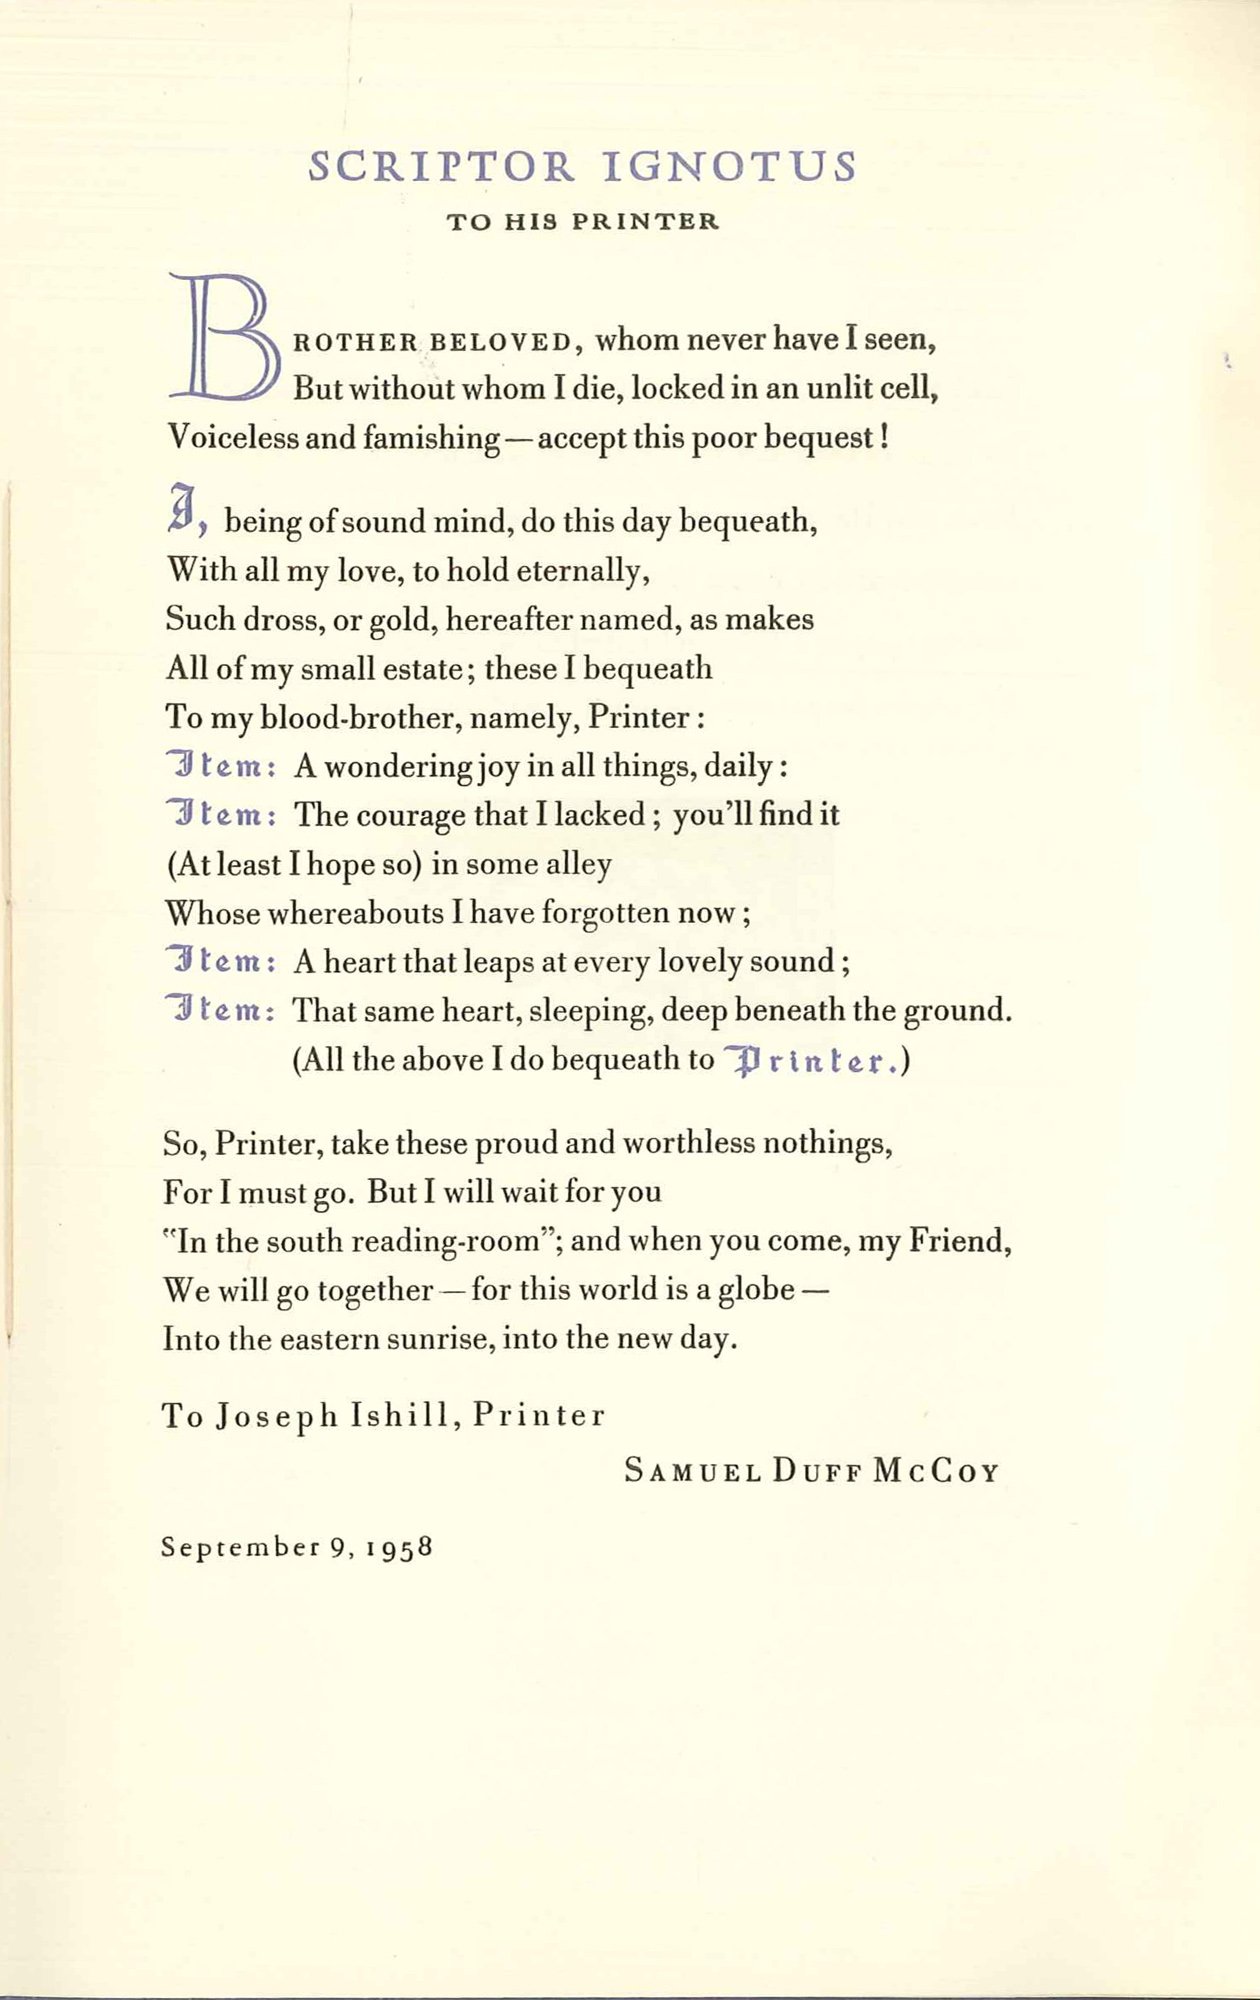 SCRIPTOR IGNOTUS
TO HIS PRINTER
BROTHER BELOVED, whom never have I seen,
But without whom I die, locked in an unlit cell,
Voiceless and famishing—accept this poor bequest!
I, being of sound mind, do this day bequeath,
With all my love, to hold eternally,
Such dross, or gold, hereafter named, as makes
All of my small estate; these I bequeath
To my blood-brother, namely, Printer:
Item: A wondering joy in all things, daily:
Item: The courage that I lacked; you'll find it
(At least I hope so) in some alley
Whose whereabouts I have forgotten now;
Item: A heart that leaps at every lovely sound;
Item: That same heart, sleeping, deep beneath the ground.
(All the above I do bequeath to Printer.)
So, Printer, take these proud and worthless nothings,
For I must go. But I will wait for you
“In the south reading-room”; and when you come, my Friend,
We will go together—for this world is a globe—
Into the eastern sunrise, into the new day.
To Joseph Ishill, Printer
SAMUEL DUFF MCCOY
September 9, 1958